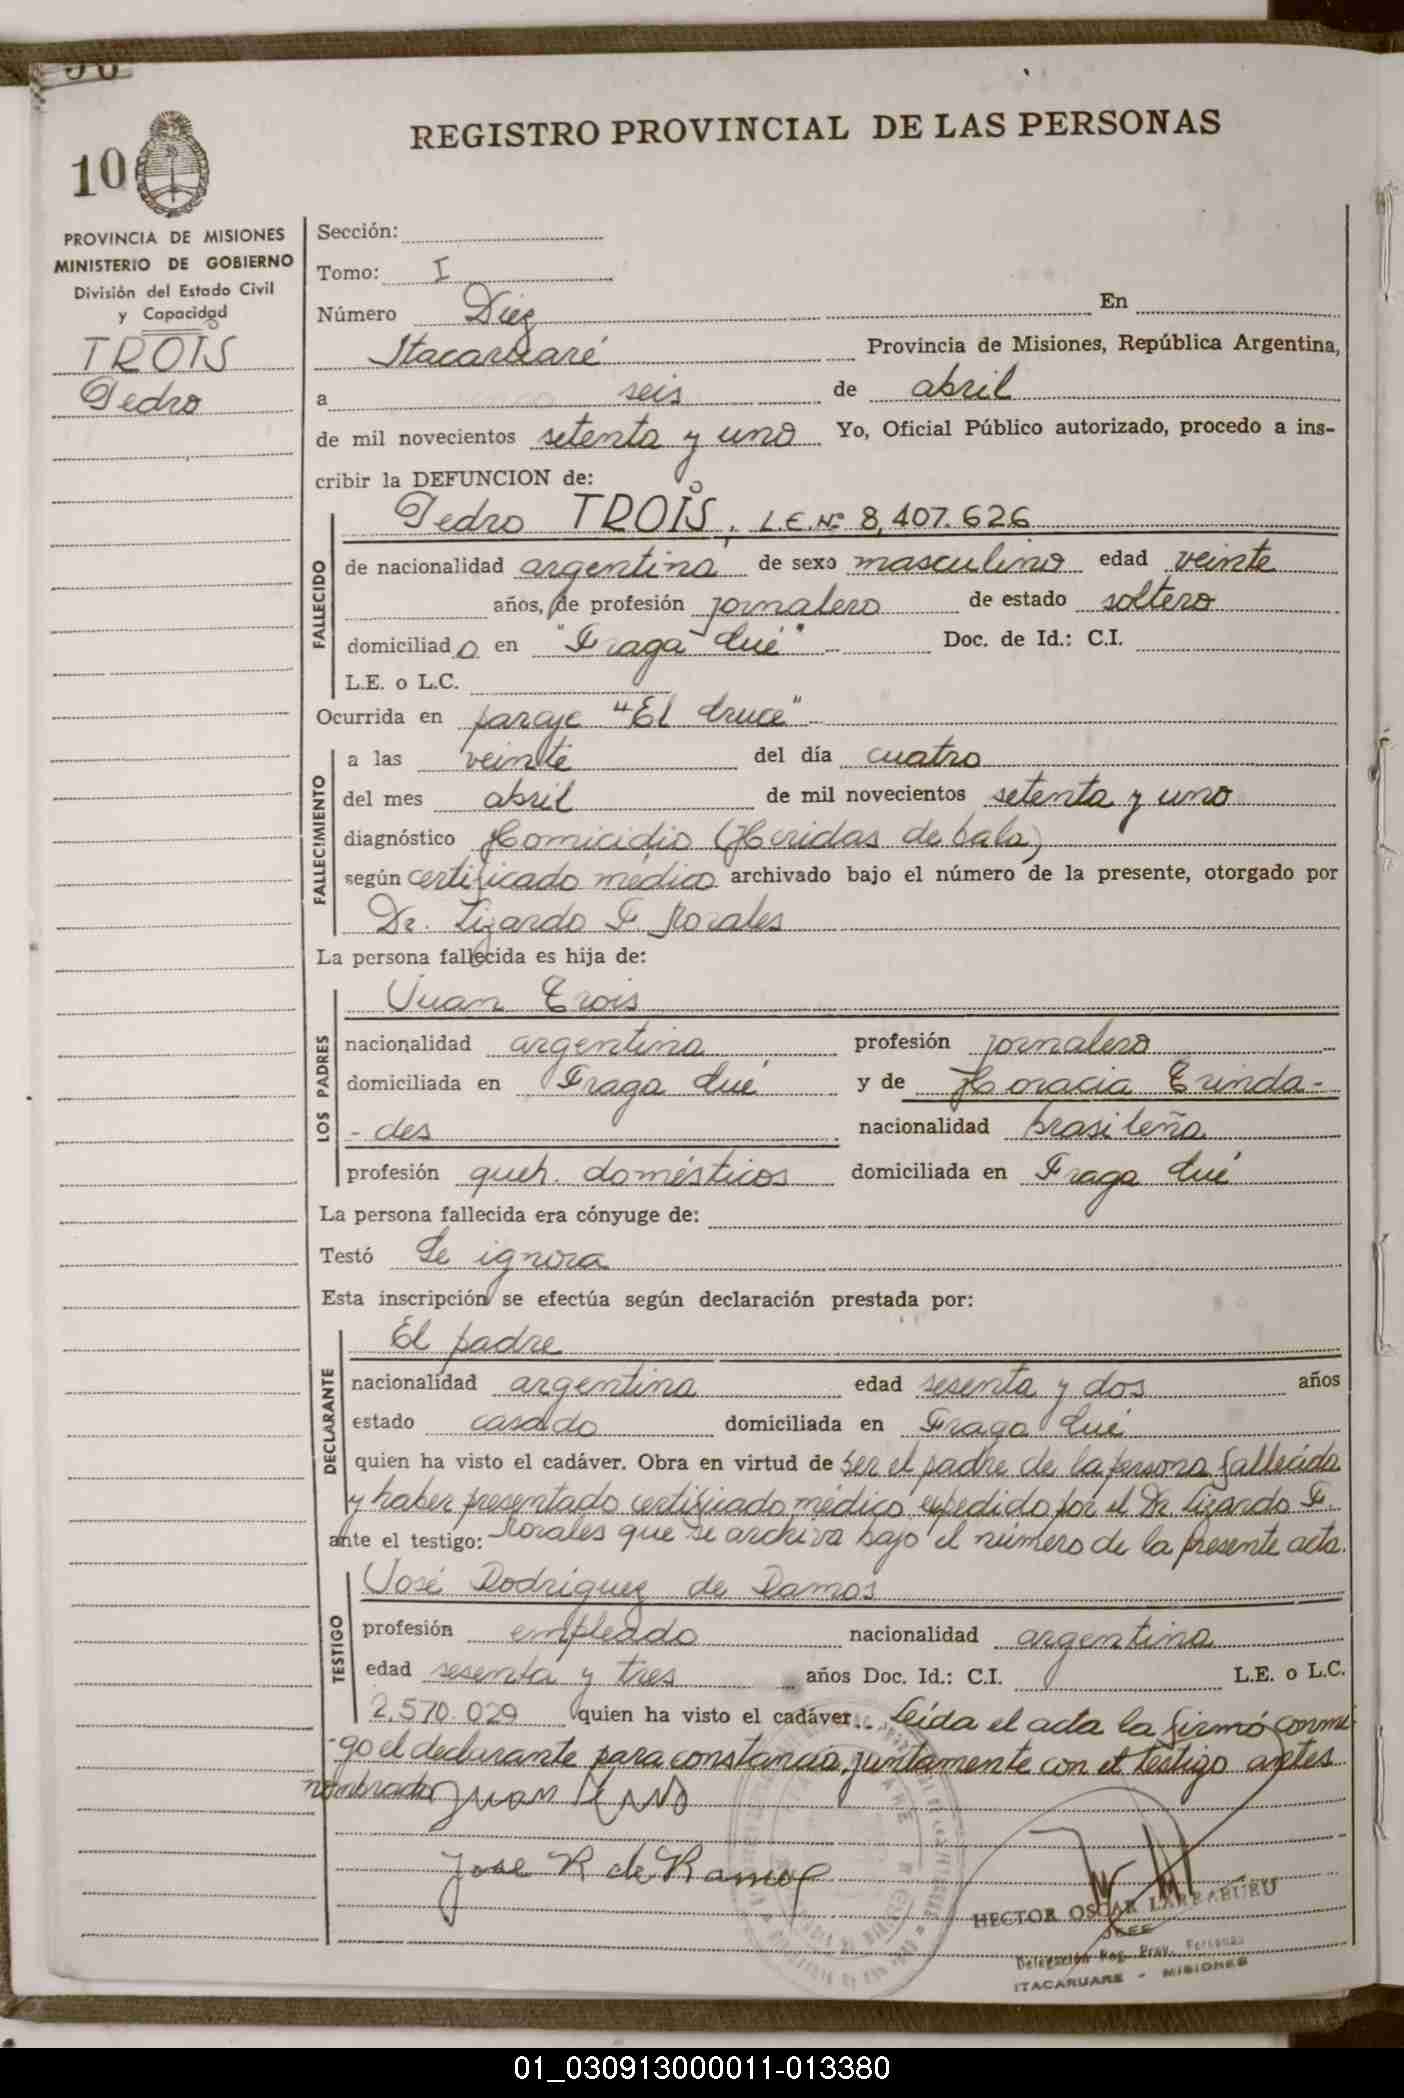 10
REGISTRO PROVINCIAL DE LAS PERSONAS
PROVINCIA DE MISIONES
MINISTERIO DE GOBIERNO
División del Estado Civil
y Capacidad
TROIS
Pedro
Sección:
Tomo: I
Número Diez En
Itacaruaré Provincia de Misiones, República Argentina,
a seis de abril
de mil novecientos setenta y uno Yo, Oficial Público autorizado, procedo a ins-
cribir la DEFUNCION de:
FALLECIDO
Pedro TROIS, L.E. Nº 8,407.626
de nacionalidad argentina de sexo masculino edad veinte
años, de profesión jornalero de estado soltero
domiciliado en "Fraga Cué" Doc. de Id.: C.I.
L.E. o L.C.
Ocurrida en paraje "El Cruce"
FALLECIMIENTO
a las veinte del día cuatro
del mes abril de mil novecientos setenta y uno
diagnóstico Homicidio (Heridas de bala)
según certificado médico archivado bajo el número de la presente, otorgado por
Dr. Lizardo F. Morales
La persona fallecida es hija de:
LOS PADRES
Juan Trois
nacionalidad argentina profesión jornalero
domiciliada en Fraga Cué y de Horacia Trinda-
- des nacionalidad brasileña
profesión queh. domésticos domiciliada en Fraga Cué
La persona fallecida era cónyuge de:
Testó Se ignora
Esta inscripción se efectúa según declaración prestada por:
DECLARANTE
El padre
nacionalidad argentina edad sesenta y dos años
estado casado domiciliada en Fraga Cué
quien ha visto el cadáver. Obra en virtud de ser el padre de la persona fallecida
y haber presentado certificado médico expedido por el Dr. Lizardo F.
ante el testigo: Morales que se archiva bajo el número de la presente acta.
TESTIGO
José Rodriguez de Ramos
profesión empleado nacionalidad argentina
edad sesenta y tres años Doc. Id.: C.I. L.E. o L.C.
2.570.029 quien ha visto el cadáver. Leída el acta la firmó conmi-
-go el declarante para constancia, juntamente con el testigo antes
nombrado Juan
Jose R de Ramos
HECTOR OSCAR LARRABURU
JEFE
Delegación Reg. Prov. Personas
ITACARUARE - MISIONES
01_030913000011-013380